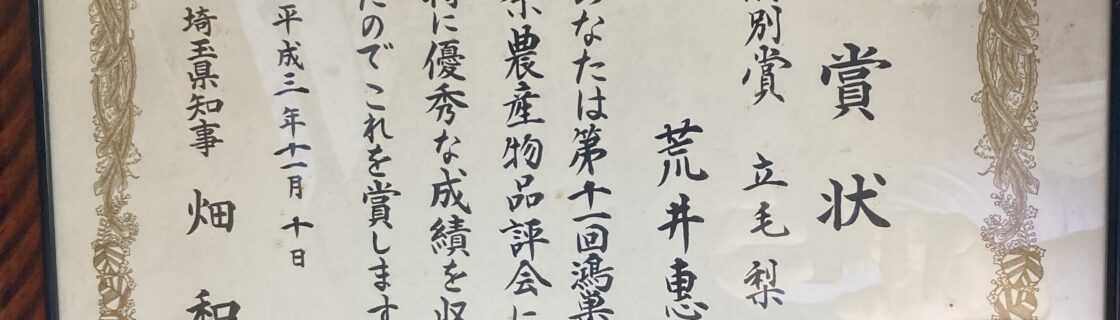 賞状
別賞 立毛 梨
荒井恵
なたは第十一回鴻巣
農産物品評会に
に優秀な成績を収
たのでこれを賞します
平成三年十一月十日
埼玉県知事 畑和